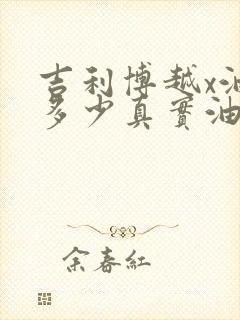 吉利博越x油
多少真實油
余春紅